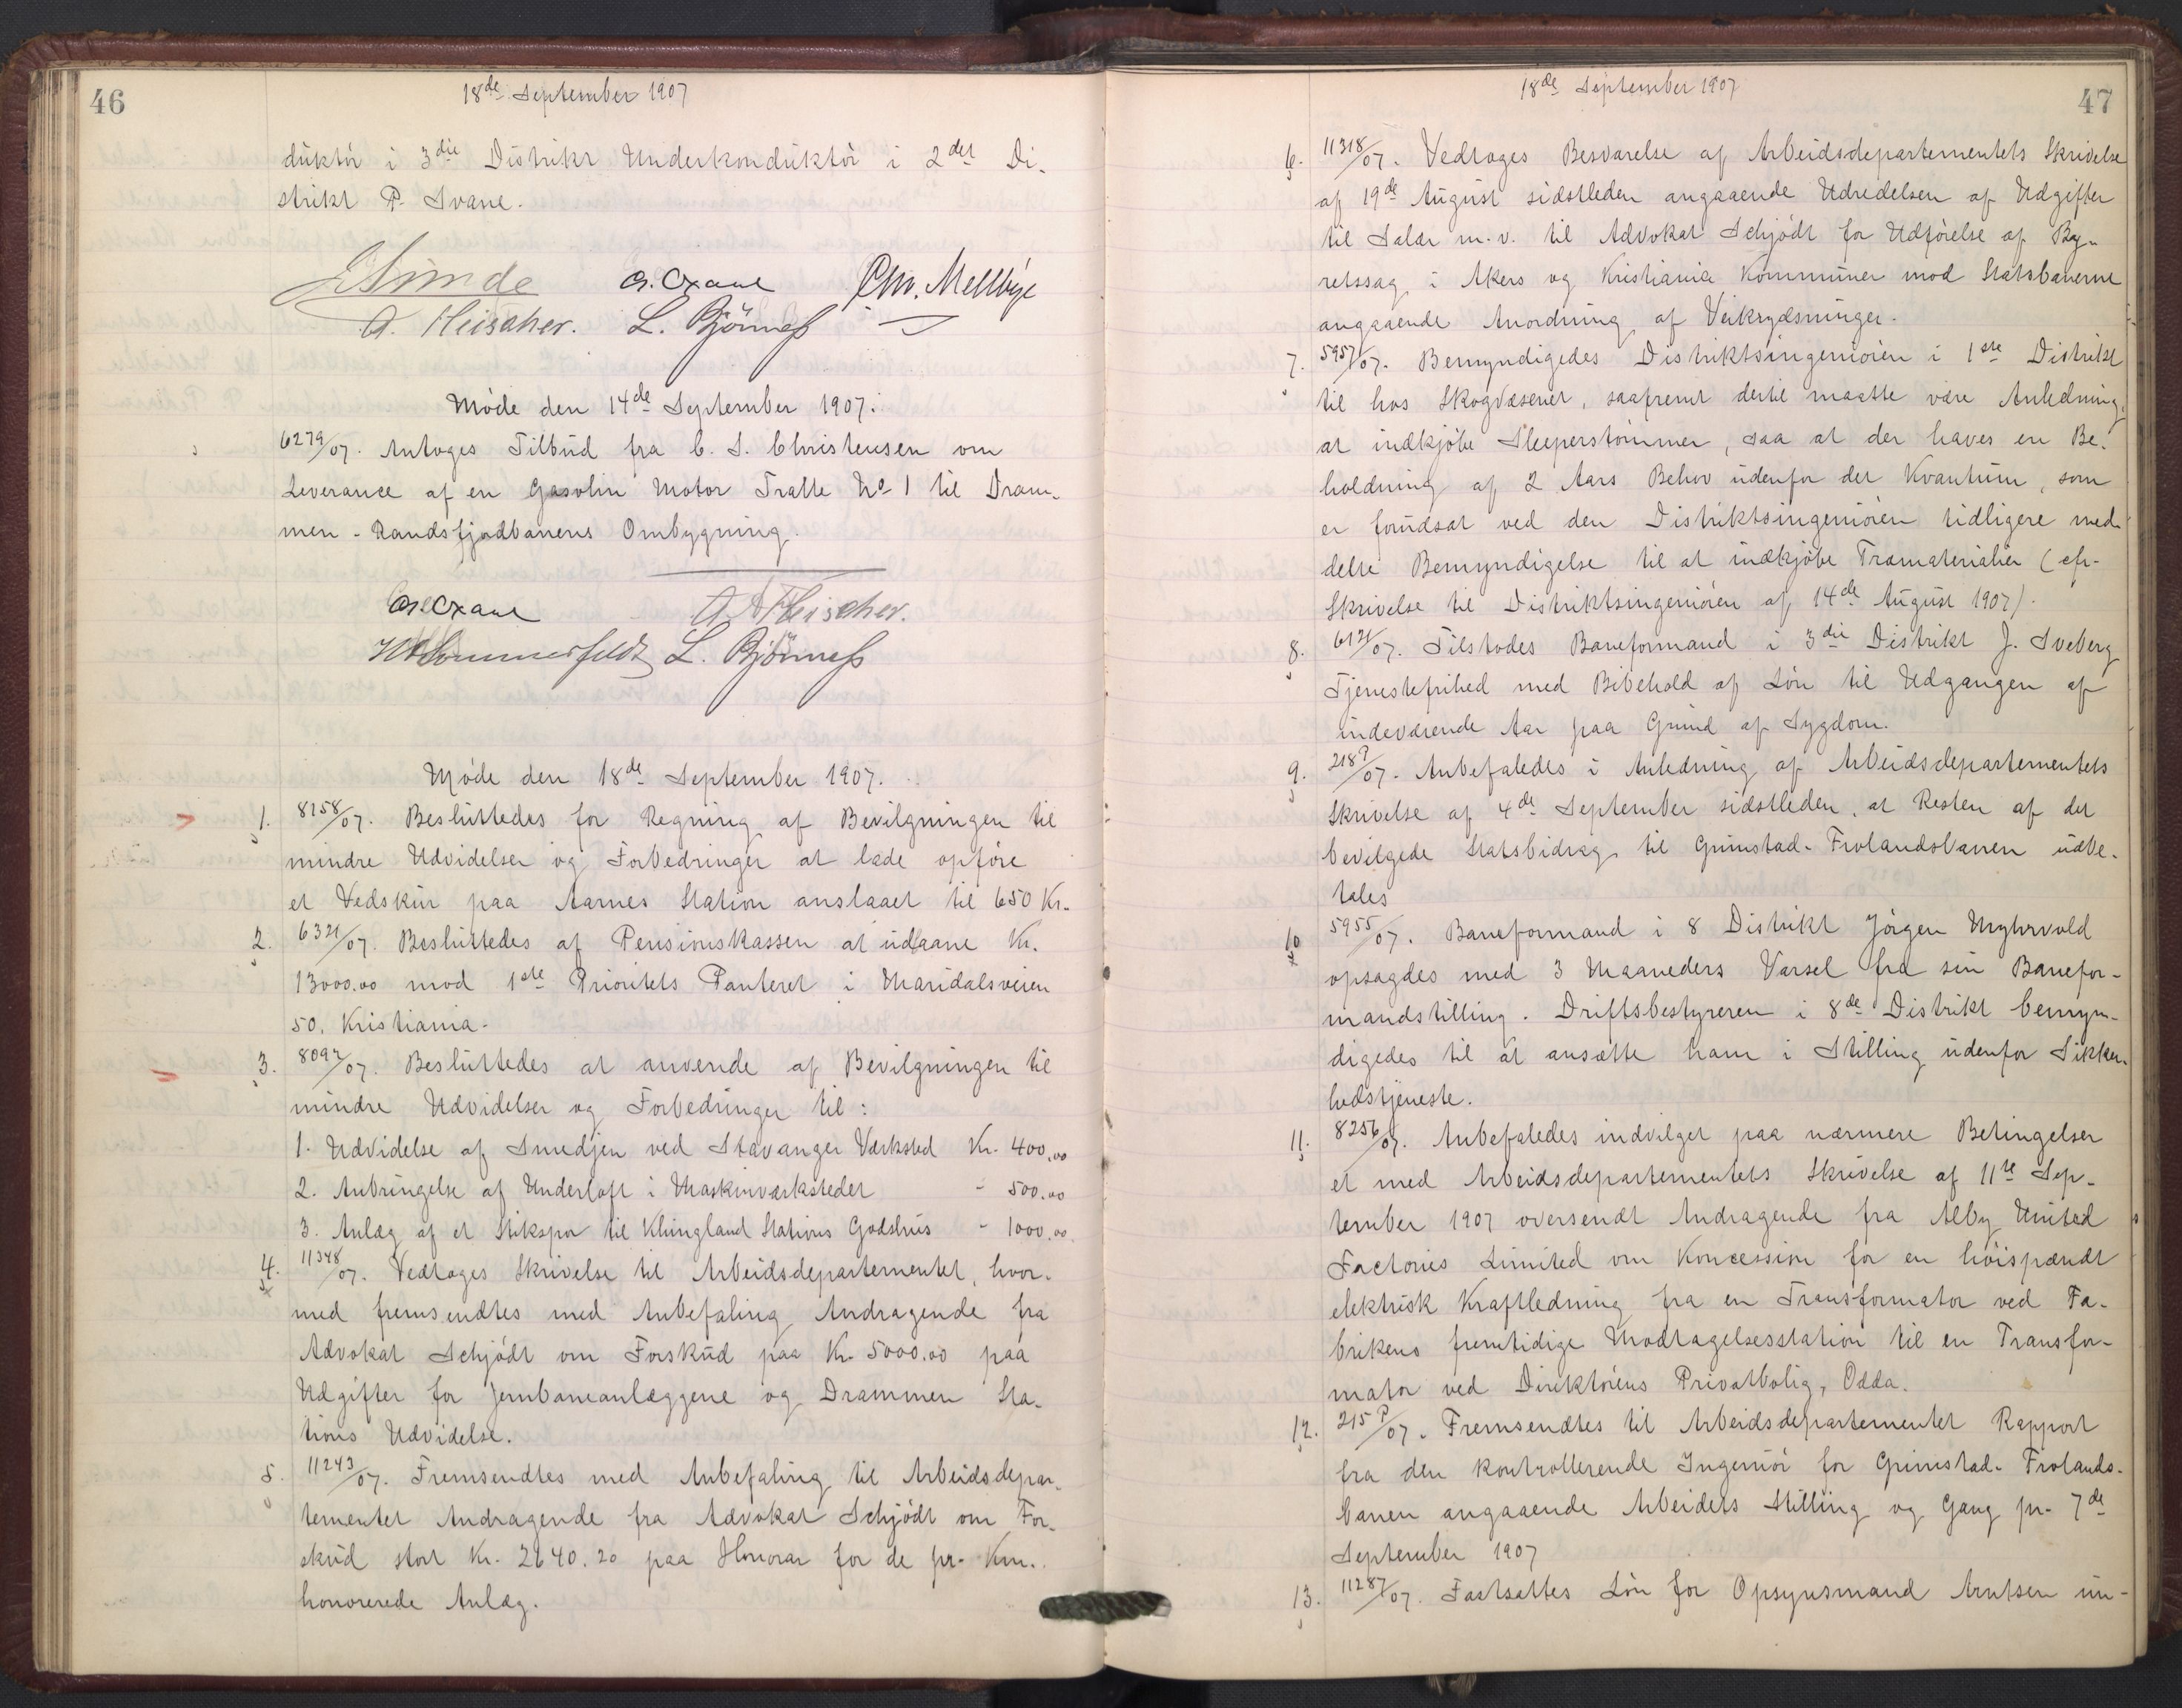 46
18de September 1907
duktør i 3die Distrikt Underkonduktør i 2det Di-
strikt P. Svane.
E Sunde   Chr. Mellbye
A. Fleischer.   L. Bjørness
Møde den 14de September 1907.
6279/07. Antoges Tilbud fra C. S. Christensen om
Leverance af en Gasolin Motor Tralle No 1 til Dram-
men - Randsfjordbanens Ombygning.
A Fleischer.
Sommerfeldt   L. Bjørness
Møde den 18de September 1907.
1. 8158/07. Besluttedes for Regning af Bevilgningen til
mindre Udvidelser og Forbedringer at lade opføre
et Vedskur paa Aarnes Station anslaaet til 650 Kr.
2. 6321/07. Besluttedes af Pensionskassen at udlaane Kr.
13000.00 mod 1ste Prioritets Panteret i Maridalsveien
50, Kristiania.
3. 8092/07. Besluttedes at anvende af Bevilgningen til
mindre Udvidelser og Forbedringer til:
1. Udvidelse af Smedjen ved Stavanger Værksted Kr. 400.00
2. Anbringelse af Underloft i Maskinværkstedet - 500.00
3. Anlæg af et Stikspor til Klungland Stations Godshus - 1000.00
4. 11348/07. Vedtoges Skrivelse til Arbeidsdepartementet, hvor-
med fremsendtes med Anbefaling Andragende fra
Advokat Schjødt om Forskud paa Kr. 5000.00 paa
Udgifter for Jernbaneanlæggene og Drammen Sta-
tions Udvidelse.
5. 11243/07. Fremsendtes med Anbefaling til Arbeidsdepar-
tementet Andragende fra Advokat Schjødt om For-
skud stort Kr. 2640.20 paa Honorar for de pr. Km.
honorerede Anlæg.
18de September 1907
47
6. 11318/07. Vedtoges Besvarelse af Arbeidsdepartementets Skrivelse
af 19de August sidstleden angaaende Udredelsen af Udgifter
til Salær m.v. til Advokat Schjødt for Udførelse af By-
retssag i Akers og Kristiania Kommuner mod Statsbanerne
angaaende Anordning af Veikrydsninger.
7. 5957/07. Bemyndigedes Distriktsingeniøren i 1ste Distrikt
til hos Skogvæsenet, saafremt dertil maatte være Anledning,
at indkjøbe Sleeperstømmer, saa at der haves en Be-
holdning af 2 Aars Behov udenfor det Kvantum, som
er forudsat ved den Distriktsingeniøren tidligere med-
delte Bemyndigelse til at indkjøbe Træmaterialier (cfr.
Skrivelse til Distriktsingeniøren af 14de August 1907).
8. 6121/07. Tilstodes Baneformand i 3die Distrikt J. Sveberg
Tjenestefrihed med Bibehold af Løn til Udgangen af
indeværende Aar paa Grund af Sygdom.
9. 218P/07. Anbefaledes i Anledning af Arbeidsdepartementets
Skrivelse af 4de September sidstleden, at Resten af det
bevilgede Statsbidrag til Grimstad-Frolandsbanen udbe-
tales
10 5955/07. Baneformand i 8 Distrikt Jørgen Myhrvold
opsagdes med 3 Maaneders Varsel fra sin Banefor-
mandstilling. Driftsbestyreren i 8de Distrikt bemyn-
digedes til at ansætte ham i Stilling udenfor Sikker-
hedstjeneste.
11. 8256/07. Anbefaledes indvilget paa nærmere Betingelser
et med Arbeidsdepartementets Skrivelse af 11te Sep-
tember 1907 oversendt Andragende fra Alby United
Factories Limited om Koncession for en høispændt
elektrisk Kraftledning fra en Transformator ved Fa-
brikens fremtidige Modtagelsesstation til en Transfor-
mator ved Direktørens Privatbolig, Odda.
12. 215P/07. Fremsendtes til Arbeidsdepartementet Rapport
fra den kontrollerende Ingeniør for Grimstad-Frolands-
banen angaaende Arbeidets Stilling og Gang pr. 7de
September 1907
13. 11287/07. Fastsattes Løn for Opsynsmand Arntsen un-